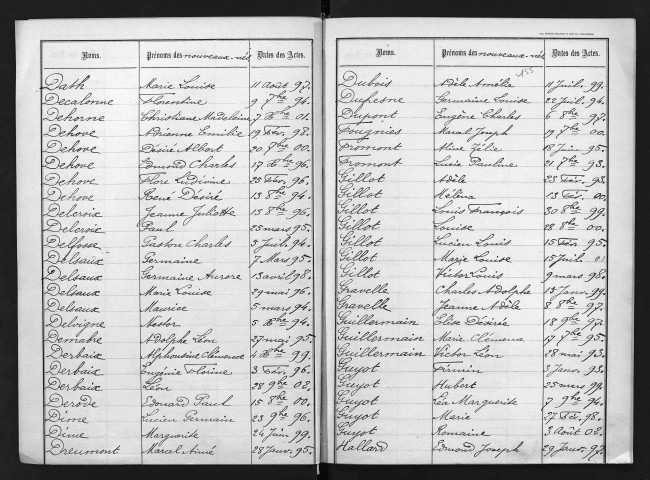 Noms. Prénoms des nouveaux-nés Dates des Actes.
Dath Marie Louise 11 Août 97.
Decalonne Florentine 9 7bre 94.
Dehorne Christiane Madeleine 7 Xbre 01.
Dehove Adrienne Emilie 19 Fév. 98.
Dehove Désiré Albert 20 7bre 00.
Dehove Edmond Charles 17 Xbre 96.
Dehove Flore Ludivine 25 Fév. 96.
Dehove René Désiré 13 8bre 94.
Delcroix Jeanne Juliette 15 8bre 96.
Delcroix Paul 25 mars 95.
Delfosse Gaston Charles 5 Juil. 94.
Delsaux Germaine 7 Mars 95.
Delsaux Germaine Aurore 13 avril 98.
Delsaux Marie Louise 29 mai 96.
Delsaux Maurice 5 mars 94.
Delvigne Nestor 5 Xbre 94.
Demabre Adolphe Léon 27 mai 95.
Derbaix Alphonsine Clémence 4 Xbre 99.
Derbaix Eugénie Florine 3 Fév. 96.
Derbaix Léon 28 9bre 02.
Derode Edouard Paul 15 8bre 00.
Dîme Lucien Germain 23 9bre 96.
Dîme Marguerite 24 Juin 99.
Dreumont Marcel Aimé 28 Janv. 95.
Noms. Prénoms des nouveaux-nés Dates des Actes.
155
Dubois Adèle Amélie 11 Juil. 99.
Dufresne Germaine Louise 22 Juil. 94.
Dupont Eugène Charles 6 8bre 97.
Fougnies Marcel Joseph 19 7bre 00.
Fromont Aline Zélie 18 Juin 95.
Fromont Lucie Pauline 21 7bre 93.
Gillot Adèle 23 Fév. 93.
Gillot Méléna 13 Fév. 00.
Gillot Louis François 30 8bre 99.
Gillot Louise 18 8bre 00.
Gillot Lucien Louis 15 Fév. 95.
Gillot Marie Louise 15 Juil. 01
Gillot Victor Louis 9 mars 98.
Gravelle Charles Adolphe 13 Janv. 99.
Gravelle Jeanne Adèle 8 8bre 97.
Guillermain Elise Désirée 18 9bre 97.
Guillermain Marie Clémence 17 7bre 95.
Guillermain Victor Léon 28 mai 93.
Guyot Firmin 3 Janv. 93.
Guyot Hubert 25 mars 99.
Guyot Léa Marguerite 7 9bre 94.
Guyot Marie 27 Fév. 98.
Guyot Romaine 3 Août 02.
Hallard Edmond Joseph 29 Janv. 97.